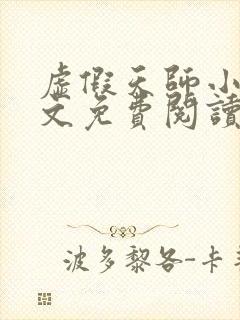 虛假天師小
文免費閱讀
波多黎各-卡